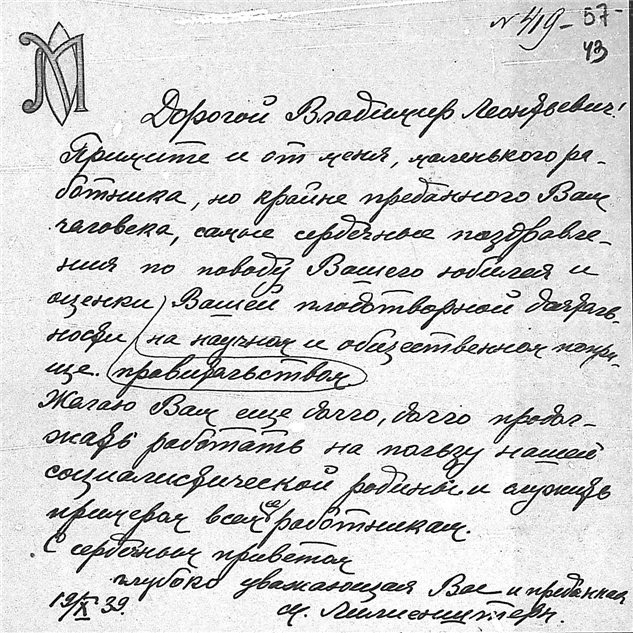 N 419 - 57-
43
М
Дорогой Владимир Леонтьевич!
Примите и от меня, маленького ра-
ботника, но крайне преданного Вам
человека, самые сердечные поздравле-
ния по поводу Вашего юбилея и
оценки Вашей плодотворной деятель-
ности на научном и общественном попри-
ще правительством
Желаю Вам еще долго, долго продол-
жать работать на пользу нашей
социалистической родины и служить
примером всем работникам.
С сердечным приветом
глубоко уважающая Вас и преданная
19/X 39. М. Лилиенштерн.